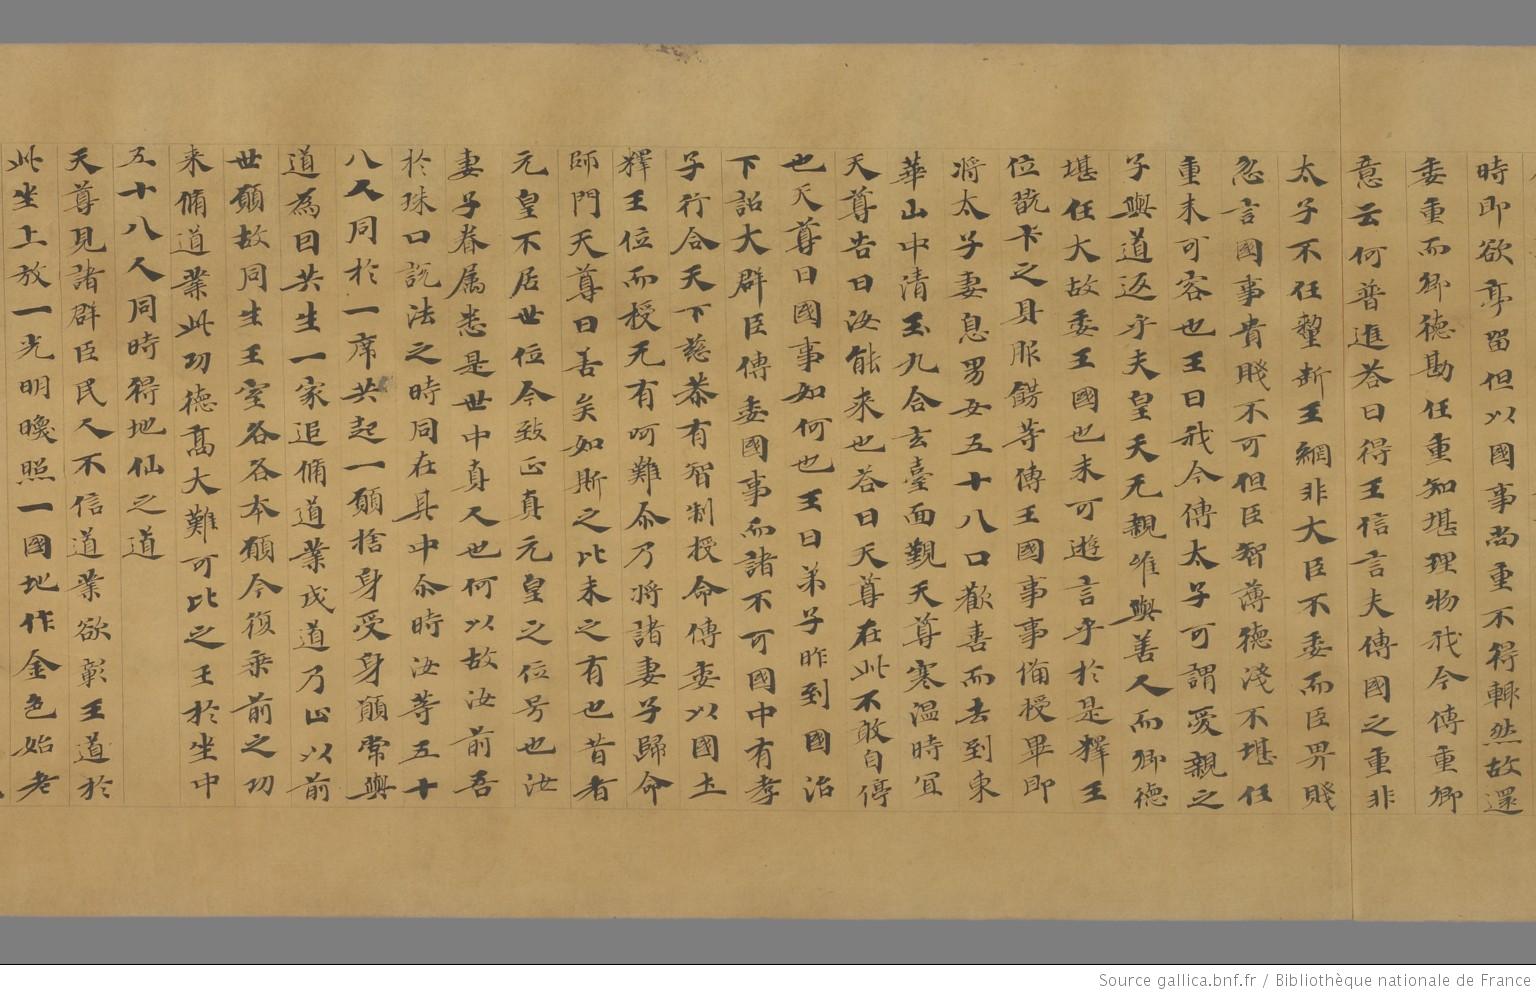 時即欲亭留但以國事尚重不得輙然故還
委重而卿德勘任重知堪理物我今傳重卿
意云何普進荅曰得王信言夫傳國之重非
太子不任整斷王綱非大臣不委而臣畀賤
忽言國事貴賤不可但臣智薄德淺不堪任
重未可容也王曰我今傳太子可謂愛親之
子與道返乎夫皇天无親唯與善人而卿德
堪任大故委王國也未可遊言乎於是釋王
位翫卞之身服餝等傳王國事事俻授畢即
將太子妻息男女五十八口歡喜而去到東
華山中清玉九合玄臺面覲天尊寒温時宜
天尊告曰汝能来也荅曰天尊在此不敢自停
也天尊曰國事如何也王曰弟子昨到國治
下詔大群臣傳委國事而諸不可國中有孝
子行合天下慈恭有智制授命傳委以國土
釋王位而授无有呵難尒乃将諸妻子歸命
師門天尊曰善矣如斯之比未之有也昔者
元皇不居世位今致正真元皇之位号也汝
妻子眷属悉是世中真人也何以故汝前吾
於珠口說法之時同在其中尒時汝等五十
八人同於一席共起一願捨身受身願常與
道為因共生一家追脩道業成道乃止以前
世願故同生王室各各本願今復乘前之功
来脩道業此功德高大難可比之王於坐中
五十八人同時得地仙之道
天尊見諸群臣民人不信道業欲彰王道於
此坐上放一光明曒照一國地作金色始老
Source gallica.bnf.fr / Bibliothèque nationale de France